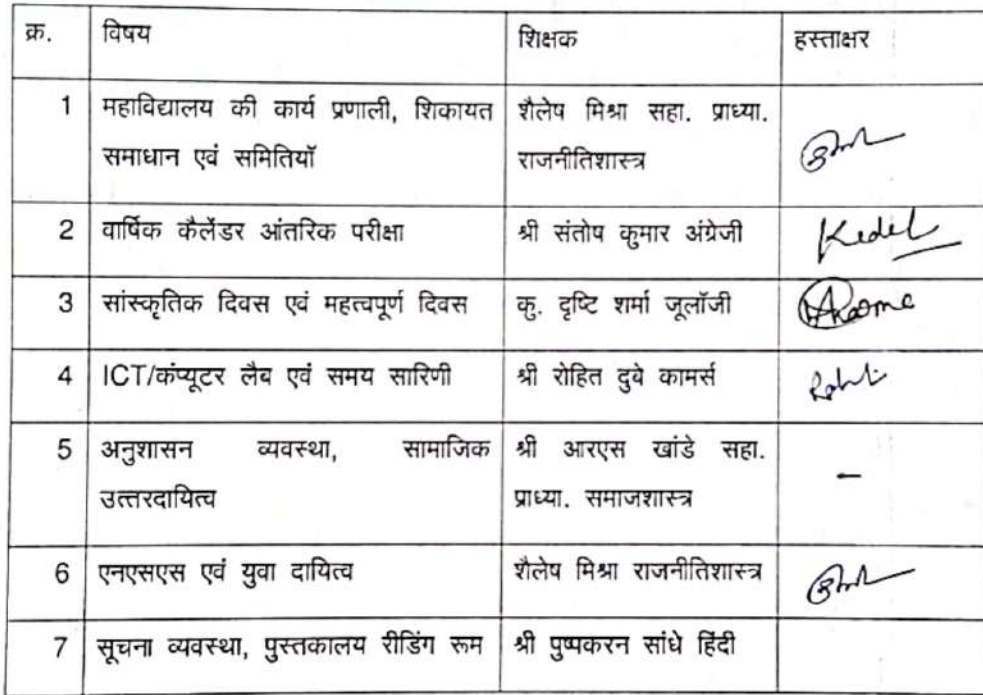 क्र. विषय शिक्षक हस्ताक्षर
1 महाविद्यालय की कार्य प्रणाली, शिकायत शैलेष मिश्रा सहा. प्राध्या.
समाधान एवं समितियॉ राजनीतिशास्त्र
2 वार्षिक कैलेंडर आंतरिक परीक्षा श्री संतोष कुमार अंग्रेजी
3 सांस्कृतिक दिवस एवं महत्वपूर्ण दिवस कु. दृष्टि शर्मा जूलॉजी
4 ICT/कंप्यूटर लैब एवं समय सारिणी श्री रोहित दुबे कामर्स
5 अनुशासन व्यवस्था, सामाजिक श्री आरएस खांडे सहा. –
उत्तरदायित्व प्राध्या. समाजशास्त्र
6 एनएसएस एवं युवा दायित्व शैलेष मिश्रा राजनीतिशास्त्र
7 सूचना व्यवस्था, पुस्तकालय रीडिंग रूम श्री पुष्पकरन सांधे हिंदी